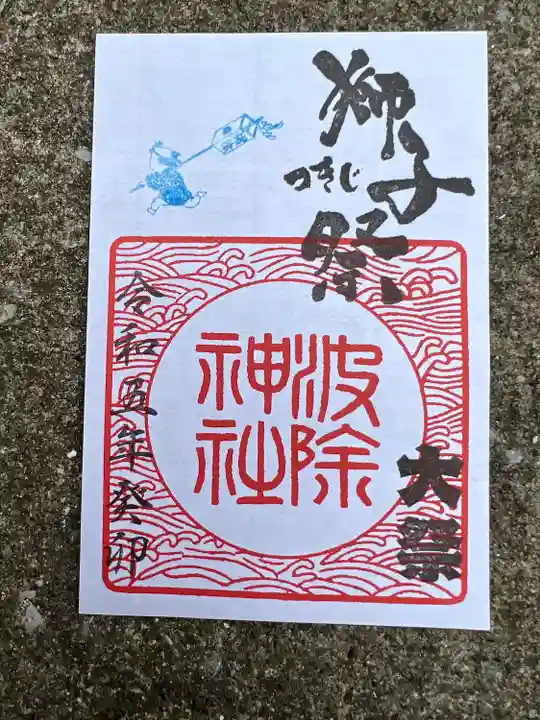 つきじ
獅子祭
波除
神社
大祭
令和五年癸卯